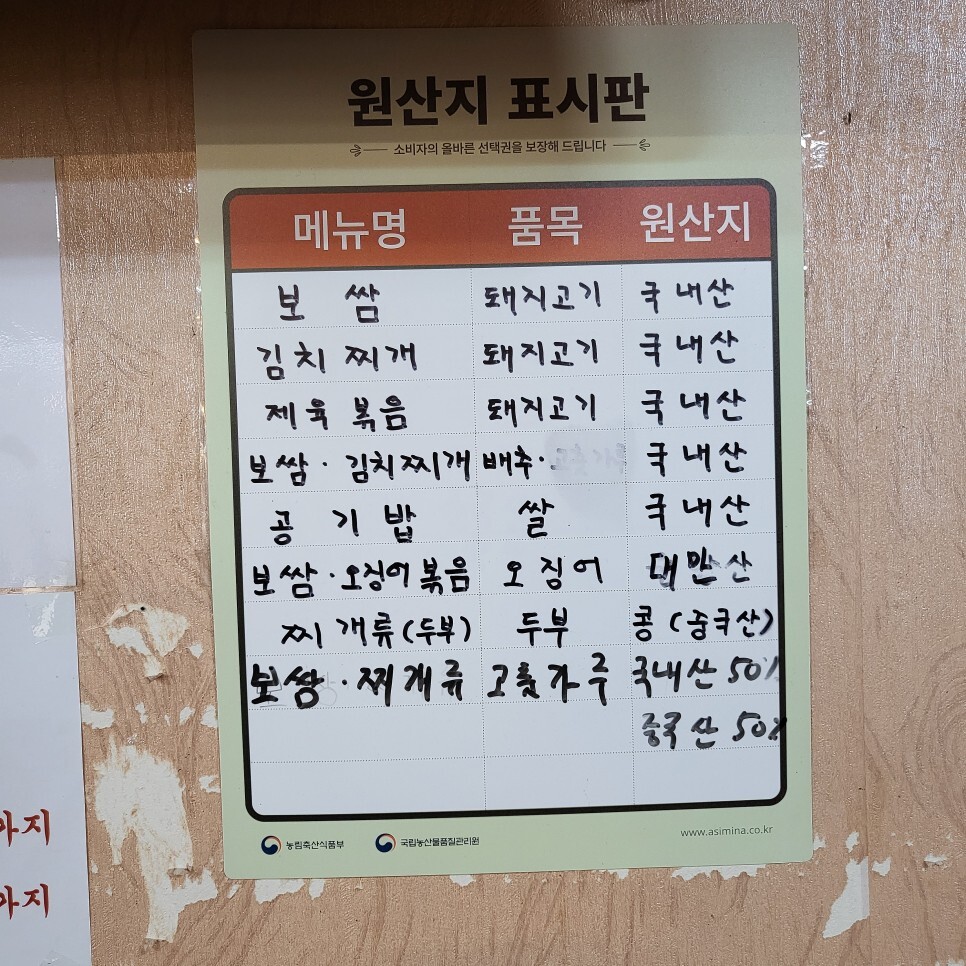 원산지 표시판
소비자의 올바른 선택권을 보장해 드립니다
메뉴명 품목 원산지
보쌈 돼지고기 국내산
김치찌개 돼지고기 국내산
제육볶음 돼지고기 국내산
보쌈·김치찌개 배추· 국내산
공기밥 쌀 국내산
보쌈·오징어볶음 오징어 대만산
찌개류(두부) 두부 콩(중국산)
보쌈·찌개류 고춧가루 국내산 50%
중국산 50%
농림축산식품부 국립농산물품질관리원 www.asimina.co.kr
아지
아지